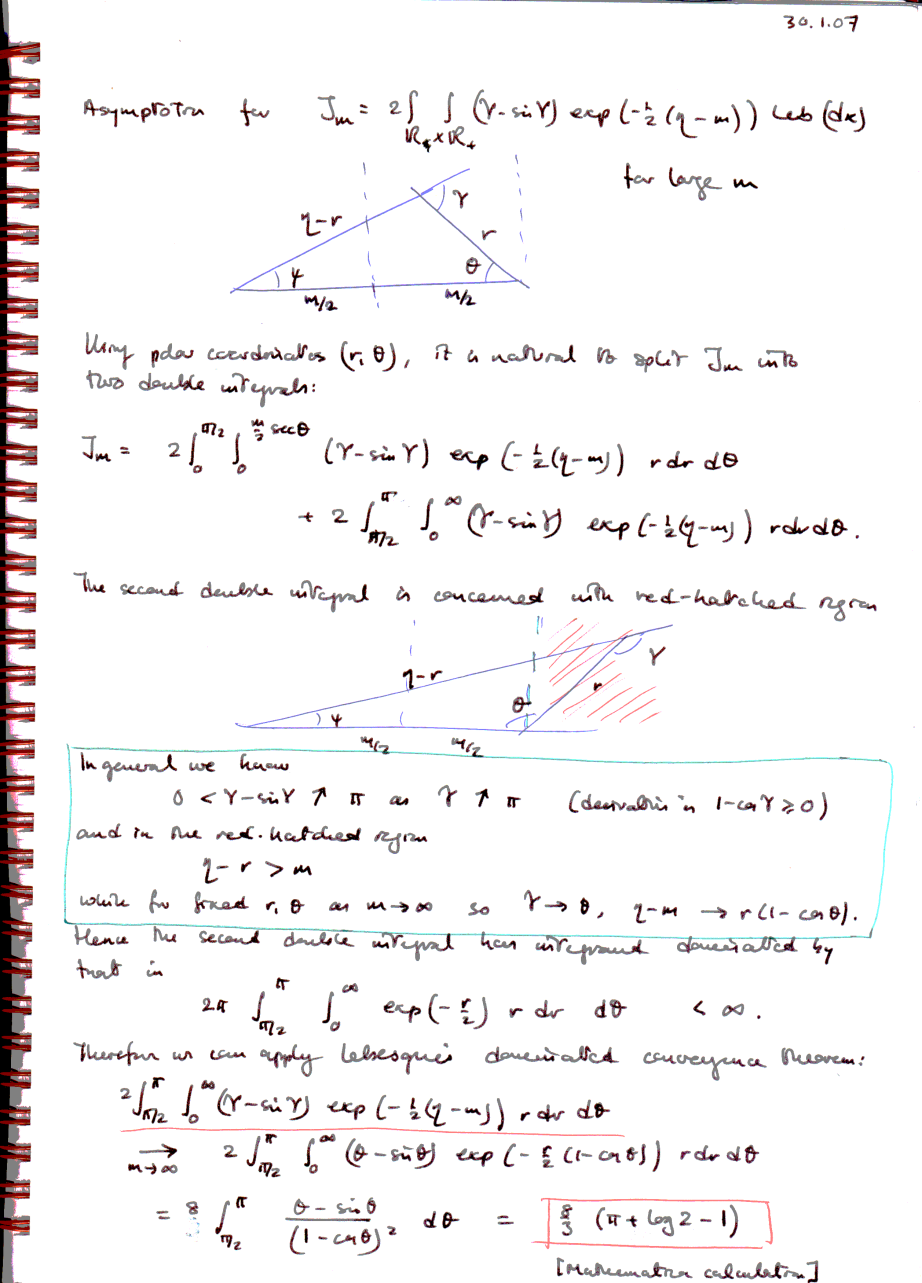 30.1.07
Asymptotia for J_m = 2∫∫_{ℝ₊×ℝ₊} (γ-sinγ) exp(-½(η-m)) Leb(dx)
for large m
η-r γ r ψ θ m/2 m/2
Using polar coordinates (r, θ), it is natural to split J_m into
two double integrals:
J_m = 2∫_0^{π/2} ∫_0^{m/2 secθ} (γ-sinγ) exp(-½(η-m)) r dr dθ
+ 2∫_{π/2}^{π} ∫_0^∞ (γ-sinγ) exp(-½(η-m)) r dr dθ.
The second double integral is concerned with red-hatched region
η-r γ r ψ θ m/2 m/2
In general we know
0 < γ-sinγ ↑ π as γ ↑ π (derivative is 1-cosγ ≥ 0)
and in the red-hatched region
η-r > m
while for fixed r, θ as m→∞ so γ→θ, η-m → r(1-cosθ).
Hence the second double integral has integrand dominated by
that in
2π ∫_{π/2}^{π} ∫_0^∞ exp(-r/2) r dr dθ < ∞.
Therefore we can apply Lebesgue's dominated convergence theorem:
2∫_{π/2}^{π} ∫_0^∞ (γ-sinγ) exp(-½(η-m)) r dr dθ
→_{m→∞} 2∫_{π/2}^{π} ∫_0^∞ (θ-sinθ) exp(-r/2 (1-cosθ)) r dr dθ
= 8 ∫_{π/2}^{π} (θ-sinθ)/(1-cosθ)² dθ = 8/3 (π + log 2 - 1)
[Mathematica calculation]